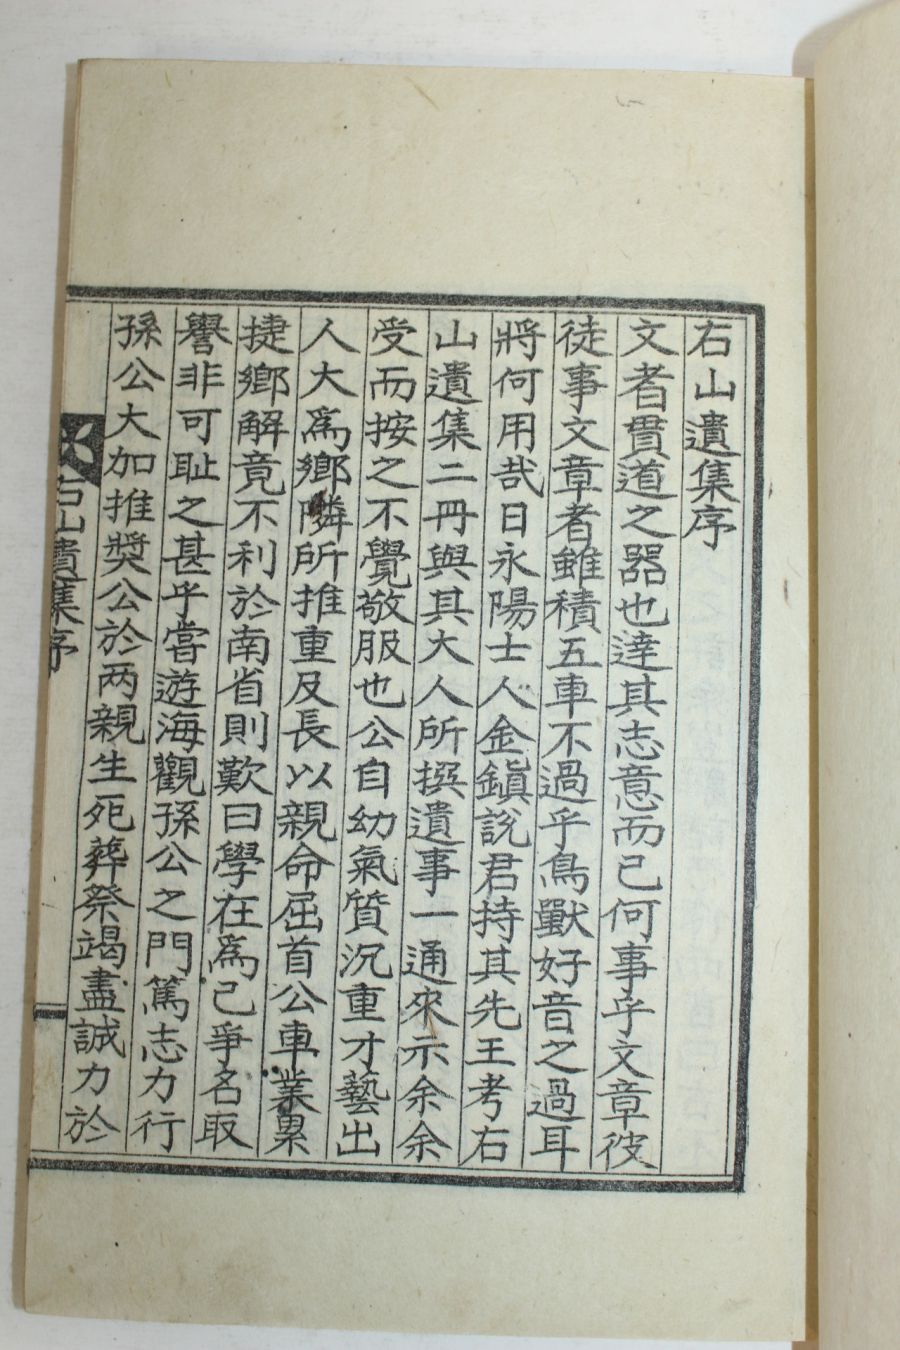 右山遺集序
文者貫道之器也達其志意而已何事乎文章彼
徒事文章者雖積五車不過乎鳥獸好音之過耳
將何用哉日永陽士人金鎭說君持其先王考右
山遺集二冊與其大人所撰遺事一通來示余余
受而按之不覺敬服也公自幼氣質沉重才藝出
人大爲鄉隣所推重及長以親命屈首公車業累
捷鄉解竟不利於南省則歎曰學在爲己爭名取
譽非可耻之甚乎嘗遊海觀孫公之門篤志力行
孫公大加推奬公於两親生死葬祭竭盡誠力於
右山遺集序